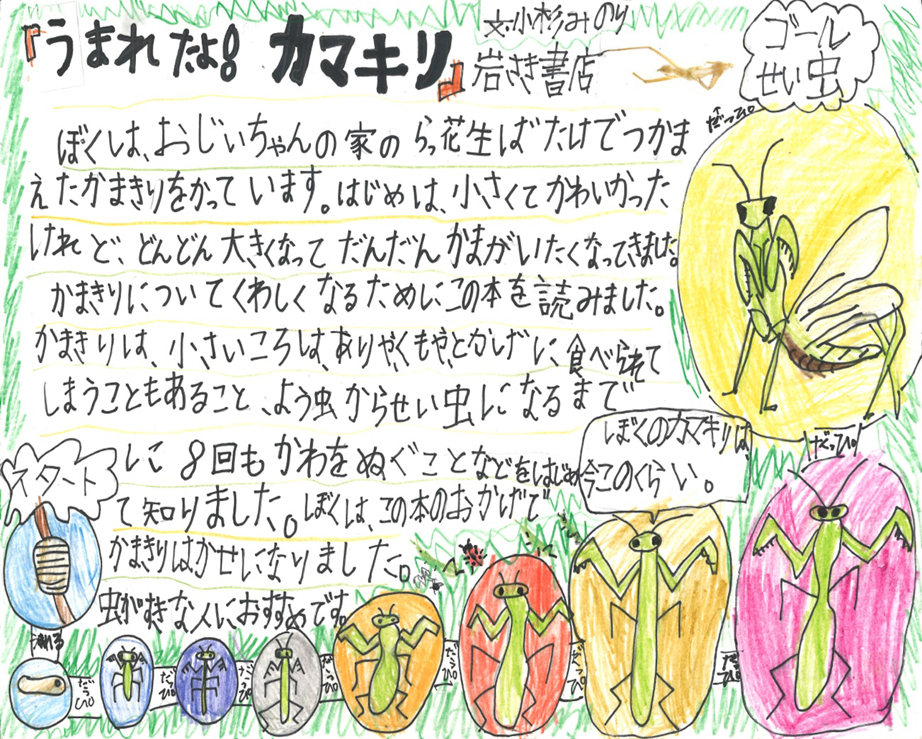 『うまれたよ! カマキリ』
文・小杉みのり
岩さき書店
ゴール
せい虫
だっぴ
ぼくは、おじいちゃんの家のらっ花生ばたけでつかま
えたかまきりをかっています。はじめは、小さくてかわいかった
けれど、どんどん大きくなってだんだんかまがいたくなってきました。
かまきりについてくわしくなるためにこの本を読みました。
かまきりは、小さいころは、ありやくもやとかげに食べられて
しまうこともあること、よう虫からせい虫になるまで
に8回もかわをぬぐことなどをはじめ
て知りました。ぼくは、この本のおかげで
かまきりはかせになりました。
虫がすきな人におすすめです。
スタート
ぼくのカマキリは、
今このくらい。
だっぴ
うまれる
だっぴ
だっぴ
だっぴ
だっぴ
だっぴ
だっぴ
だっぴ